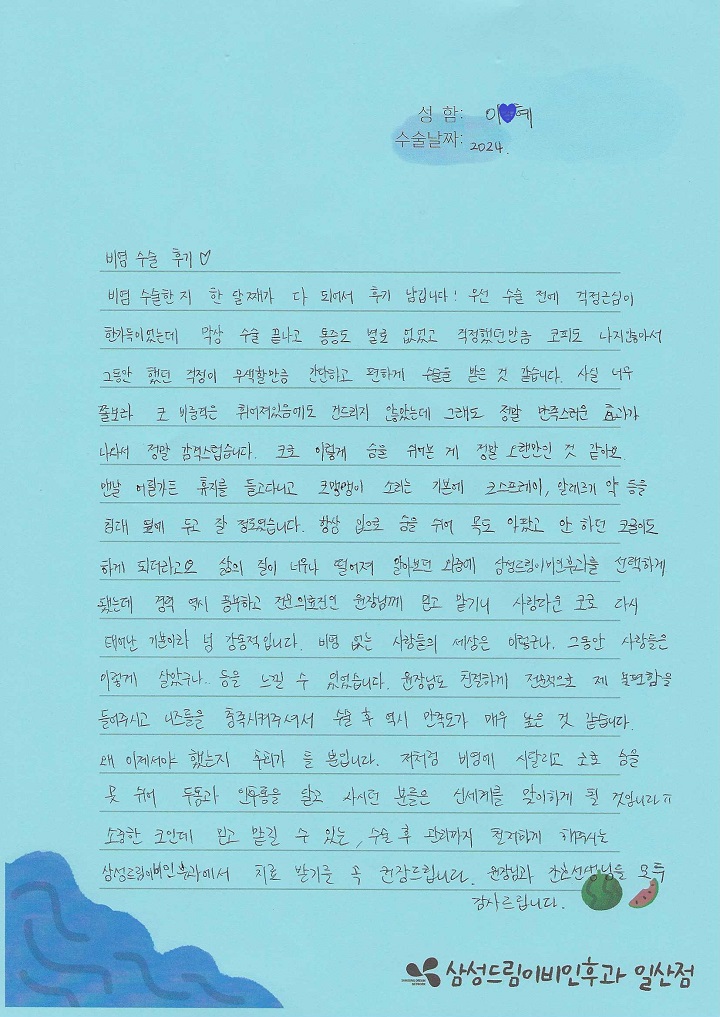 성 함: 이💙혜
수술날짜: 2024.
비염 수술 후기♡
비염 수술한 지 한 달째가 다 되어서 후기 남깁니다! 우선 수술 전에 걱정근심이
한가득이었는데 막상 수술 끝나고 통증도 별로 없었고 걱정했던만큼 코피도 나지않아서
그동안 했던 걱정이 무색할만큼 간단하고 편하게 수술을 받은 것 같습니다. 사실 너무
쫄보라 코 비중격은 휘어져있음에도 건드리지 않았는데 그래도 정말 만족스러운 효과가
나타나서 정말 감격스럽습니다. 코로 이렇게 숨을 쉬어본 게 정말 오랜만인 것 같아요.
맨날 어딜가든 휴지를 들고다니고 코맹맹이 소리는 기본에 코스프레이, 알레르기 약 등을
침대 옆에 두고 잘 정도였습니다. 항상 입으로 숨을 쉬어 목도 아팠고 안 하던 코골이도
하게 되더라고요 삶의 질이 너무나 떨어져 알아보던 와중에 삼성드림이비인후과를 선택하게
됐는데 경력 역시 풍부하고 전문의료진인 원장님께 믿고 맡기니 사람다운 코로 다시
태어난 기분이라 넘 감동적입니다. 비염 없는 사람들의 세상은 이렇구나. 그동안 사람들은
이렇게 살았구나.. 등을 느낄 수 있었습니다. 원장님도 친절하게 전문적으로 제 불편함을
들어주시고 니즈들을 충족시켜주셔서 수술 후 역시 만족도가 매우 높은 것 같습니다.
왜 이제서야 했는지 후회가 들 뿐입니다. 저처럼 비염에 시달리고 코로 숨을
못 쉬어 두통과 인후통을 달고 사시던 분들은 신세계를 맞이하게 될 것입니다ㅠ
소중한 코인데 믿고 맡길 수 있는, 수술 후 관리까지 철저하게 해주시는
삼성드림이비인후과에서 치료 받기를 꼭 권장드립니다. 원장님과 간호선생님들 모두
감사드립니다.
삼성드림이비인후과 일산점